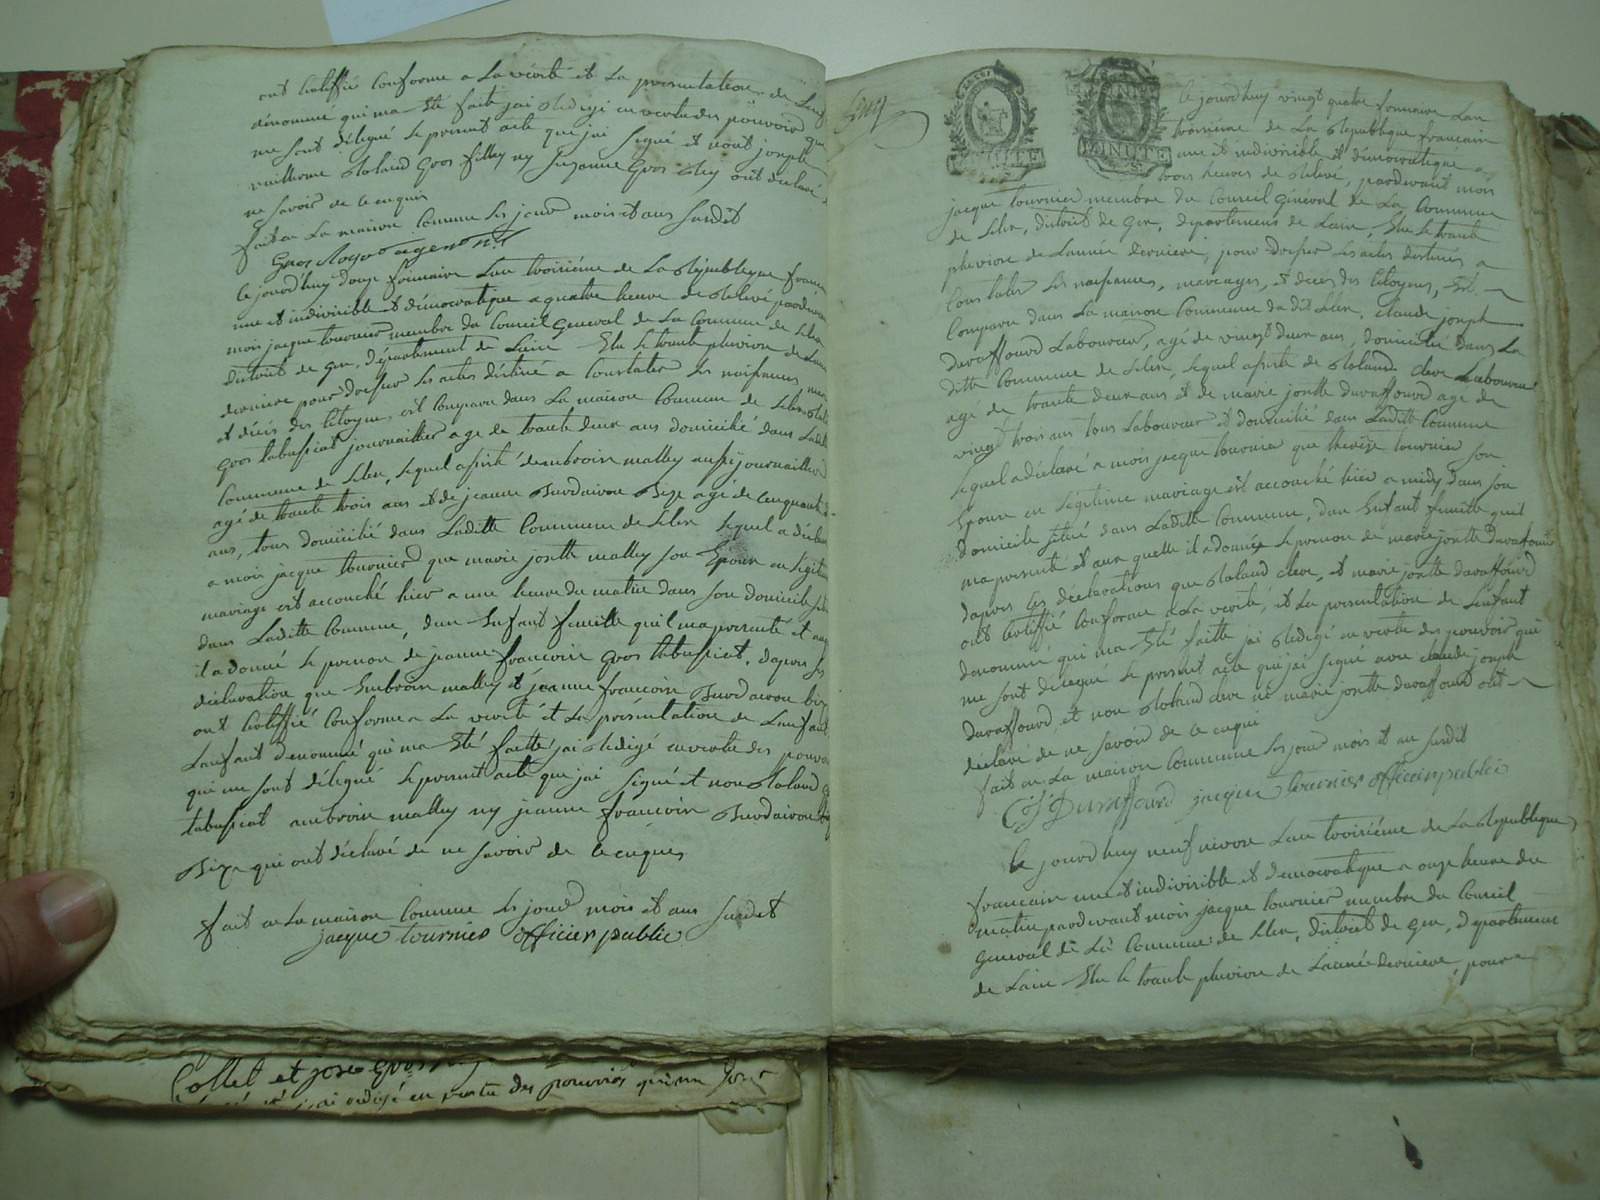 ont certiffié conforme a La vérité et La presentation de Lenf
dénommé qui ma Eté faite jai Redigé en vertu des pouvoirs qui
me sont délégué Le present acte que jai signé et nont joseph
vuillerme Roland Gros fillley ny Suzanne Gros ont déclaré
ne savoir de ce enquis
fait en La maison Comune Les jour mois et ans Susdit
Le jourdhuy Frimaire Lan troisiéme de La République franc
une et indivisible et démocratique a quatre heure de Relevé pardevan
mois jacque tournier membre du Conseil General de La Commune de Lelex
district de Gex, département de Lain Elu Le trante pluviose de Lann
derniere pour dresser Les actes déstiné a Constater Les naissances, mar
et décés des Citoyens est Comparu dans La maison Commune de Lelex Rola
Gros tabussiat journaillier age de trante deux ans domicilié dans Ladit
Commune de Lelex, Lequel assisté dambroise mallley aussy journaillier
agé de trante trois ans et de jeanne Burdairon Bize agé de Cinquante
ans, tous domicilié dans Laditte Commune de Lelex Lequel a déclar
a mois jacque tournier que marie josette mallley son Epouse en Legitim
mariage est accouché hier a une heure du matin dans son domicile situ
dans Laditte Commune, dun Enfant femelle quil ma presenté et auqu
il a donné Le prenom de jeanne francoise Gros tabussiat, dapres Les
déclaration que Embroise mallley et jeanne francoise Burdairon biz
ont certiffié Conforme a La vérité et La présentation de Lenfant
Lanfant denommé qui ma Eté faitte jai Redigé en vertu des pouvoi
qui me sont délégué Le present acte que jai signé et non Roland G
tabussiat ambroise mallley ny jeanne francoise Burdairon
Bize qui ont déclaré de ne savoir de ce enquis
fait en La maison Commune Les jour mois et ans Susdit
jacque tournier officier public
MINUTE
MINUTE
Le jourdhuy vingt quatre frimaire Lan
troisiéme de La République francaise
une et indivisible et démocratique
trois heures de Relevé, pardevant mois
jacque tournier membre du Conseil Général de La Commune
de Lelex, district de Gex, departement de Lain, Elu Le trante
pluviose de Lannée derniere, pour dresser Les actes destinés a
Constater Les naissances, mariages, et décés des Citoyens, Est
Comparu dans La maison Commune dudit Lelex, Claude joseph
Duraffourd Laboureur, agé de vingt deux ans, domicilié dans La
ditte Commune de Lelex, Lequel assisté de Roland Clerc Laboureur
agé de trante deux ans et de marie josette Duraffourd age de
vingt trois ans tous Laboureur et domicilié dans Laditte Commune
Lequel a déclaré a mois jacque tournier que therése tournier son
Epouse en Légitime mariage est accouché hier a midy dans son
domicile situé dans Laditte Commune, dun Enfant femelle quil
ma presenté et auquelle il a donnée Le prenom de marie josette Duraffourd
dapres Les déclarations que Roland Clerc, et marie josette Duraffourd
ont certiffié Conforme a La vérité, et La presentation de Lenfant
denommé qui ma Eté faitte jai Redigé en vertu des pouvoir qui
me sont delégué Le present acte que jai signé avec claude joseph
Duraffourd, et non Roland Clerc ni marie josette Duraffourd ont
déclaré de ne savoir de ce enquis
fait en La maison Commune Les jour mois et an Susdit
CJ Duraffourd jacque tournier officier public
Le jourdhuy neuf nivose Lan troisiéme de La République
francaise une et indivisible et democratique a onze heure du
matin pardevant mois jacque tournier membre du Conseil
General de La Commune de Lelex, district de Gex, département
de Lain Elu Le trante pluviose de Lannée derniere, pour
Collet et jose Gros
jai rédigé en vertu des pouvoirs qui me sont